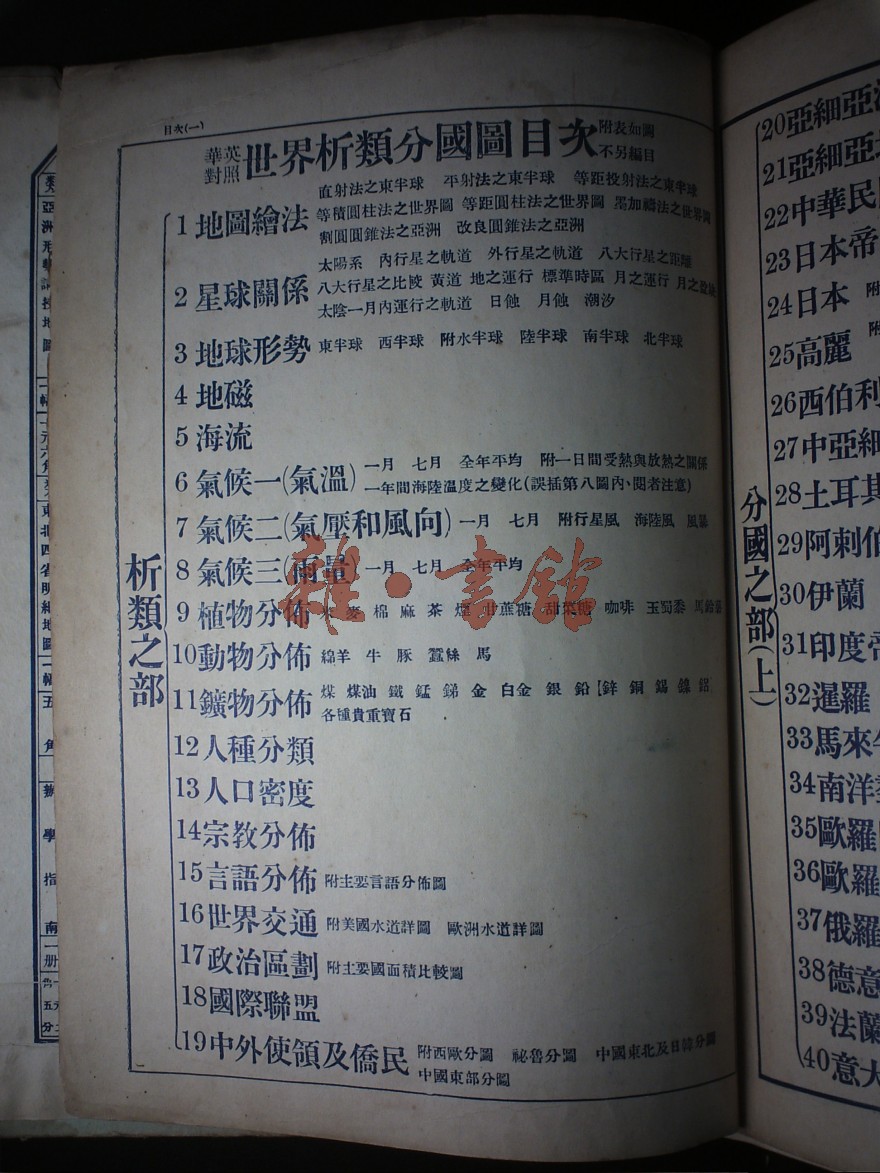 目次(一)
華英對照 世界析類分國圖目次 附表如圖不另編目
析類之部
1 地圖繪法 直射法之東半球 平射法之東半球 等距投射法之東半球
等積圓柱法之世界圖 等距圓柱法之世界圖 墨加禱法之世界圖
割圓圓錐法之亞洲 改良圓錐法之亞洲
2 星球關係 太陽系 內行星之軌道 外行星之軌道 八大行星之距離
八大行星之比較 黃道 地之運行 標準時區 月之運行 月之
太陰一月內運行之軌道 日蝕 月蝕 潮汐
3 地球形勢 東半球 西半球 附水半球 陸半球 南半球 北半球
4 地磁
5 海流
6 氣候一(氣溫) 一月 七月 全年平均 附一日間受熱與放熱之關係
一年間海陸溫度之變化(誤插第八圖內、閱者注意)
7 氣候二(氣壓和風向) 一月 七月 附行星風 海陸風 風暴
8 氣候三(雨量) 一月 七月 全年平均
9 植物分佈 米 麥 棉 麻 茶 煙 甘蔗糖 甜菜糖 咖啡 玉蜀黍 馬鈴薯
10 動物分佈 綿羊 牛 豚 蠶絲 馬
11 鑛物分佈 煤 煤油 鐵 錳 銻 金 白金 銀 鉛 鋅 銅 錫 鎳 鋁
各種貴重寶石
12 人種分類
13 人口密度
14 宗教分佈
15 言語分佈 附主要言語分佈圖
16 世界交通 附美國水道詳圖 歐洲水道詳圖
17 政治區劃 附主要國面積比較圖
18 國際聯盟
19 中外使領及僑民 附西歐分圖 祕魯分圖 中國東北及日韓分圖
中國東部分圖
雜·書館
分國之部(上)
20 亞細亞
21 亞細亞
22 中華民
23 日本帝
24 日本 附
25 高麗
26 西伯利
27 中亞細
28 土耳其
29 阿剌伯
30 伊蘭
31 印度帝
32 暹羅
33 馬來
34 南洋
35 歐羅
36 歐羅
37 俄羅
38 德意
39 法蘭
40 意大